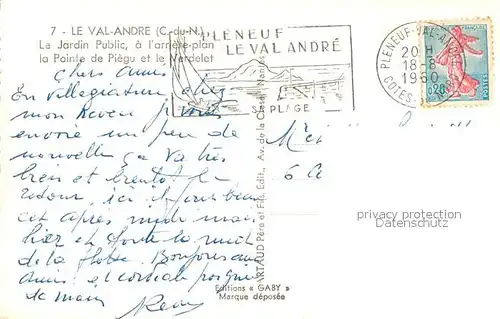 7 - LE VAL-ANDRE (C.-du-N.)
Le Jardin Public, à l'arrière-plan
la Pointe de Piégu et le Verdelet
PLENEUF
LE VAL ANDRÉ
SA PLAGE
PLENEUF-VAL-ANDRÉ
20 H
18-8
1960
COTES-
FRANÇAISE
0,20
POSTES
Chers amis
En villegiature chez
mon
envoie un peu de
nouvelle ça va très
bien et bientôt le
retour, ici il fait beau
cet après midi mais
hier et toute la nuit
de la flotte. Bonjours aux
amis et cordiale poignée
de main
Remy
ARTAUD Père et Fils, Edit., Av. de la Close, Nantes
Editions « GABY »
Marque déposée
privacy protection
Datenschutz